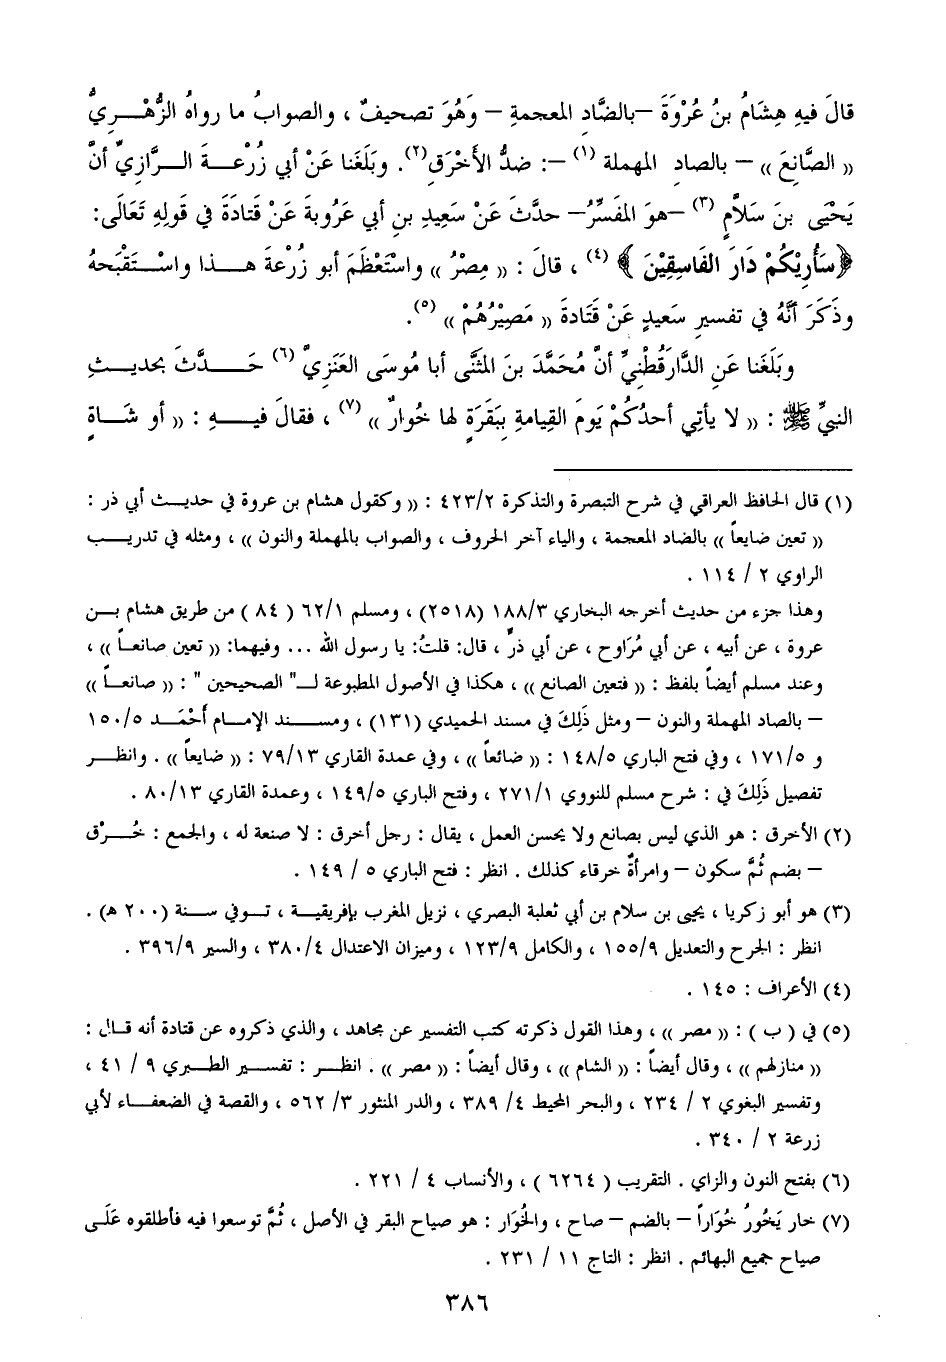 قالَ فيهِ هِشَامُ بنُ عُرْوَةَ –بالضَّادِ المعجمةِ – وَهُوَ تصحيفٌ ، والصوابُ ما رواهُ الزُّهْـــرِيُّ
« الصَّانِعَ » – بالصادِ المهملة (١) –: ضدُّ الأَخْرَقِ(٢). وبَلَغَنا عَنْ أبي زُرْعـــةَ الــرَّازِيِّ أنَّ
يَحْيَى بنَ سَلاَّمٍ (٣) –هوَ المفَسِّرُ– حدَّثَ عَنْ سَعِيدِ بنِ أبي عَرُوبةَ عَنْ قتادَةَ في قولِهِ تَعَالَى:
﴿سَأُرِيْكُمْ دَارَ الفَاسِقِيْنَ ﴾ (٤) ، قالَ : « مِصْرُ » واسْتَعْظَمَ أبو زُرْعةَ هــذا واسْــتَقْبَحَهُ
وذَكَرَ أنَّهُ في تفسيرِ سَعيدٍ عَنْ قَتَادَةَ « مَصِيْرُهُمْ » (٥).
وبَلَغَنا عَنِ الدَّارَقُطْنِيِّ أنَّ مُحَمَّدَ بنَ المثَنَّى أبا مُوسَى العَنَزِيَّ (٦) حَــــدَّثَ بحديــثِ
النبيِّ ﷺ : « لا يأتِي أحدُكُمْ يَومَ القِيامةِ بِبَقَرَةٍ لها خُوارٌ » (٧) ، فقالَ فيــهِ : « أو شــاةٍ
(١) قال الحافظ العراقي في شرح التبصرة والتذكرة ٤٢٣/٢ : « وكقول هشام بن عروة في حديــث أبي ذر :
« تعين ضايعاً » بالضاد المعجمة ، والياء آخر الحروف ، والصواب بالمهملة والنون » ، ومثله في تدريــب
الراوي ٢ / ١١٤ .
وهذا جزء من حديث أخرجه البخاري ١٨٨/٣ (٢٥١٨) ، ومسلم ٦٢/١ ( ٨٤ ) من طريق هشام بــن
عروة ، عن أبيه ، عن أبي مُرَاوح ، عن أبي ذرٍّ ، قال: قلتُ: يا رسول الله ... وفيهما: « تعين صانعاً » ،
وعند مسلم أيضاً بلفظ : « فتعين الصانع » ، هكذا في الأصول المطبوعة لــ" الصحيحين " : « صانعــاً »
– بالصاد المهملة والنون – ومثل ذَلِكَ في مسند الحميدي (١٣١) ، ومســند الإمــام أَحْمَــد ١٥٠/٥
و ١٧١/٥ ، وفي فتح الباري ١٤٨/٥ : « ضائعاً » ، وفي عمدة القاري ٧٩/١٣ : « ضايعاً » . وانظــر
تفصيل ذَلِكَ في : شرح مسلم للنووي ٢٧١/١ ، وفتح الباري ١٤٩/٥ ، وعمدة القاري ٨٠/١٣ .
(٢) الأخرق : هو الذي ليس بصانع ولا يحسن العمل ، يقال : رجل أخرق : لا صنعة له ، والجمع : خُــرْق
– بضم ثُمَّ سكون – وامرأةٌ خرقاء كذلك . انظر : فتح الباري ٥ / ١٤٩ .
(٣) هو أبو زكريا ، يحيى بن سلام بن أبي ثعلبة البصري ، نزيل المغرب بإفريقيــة ، تــوفي ســنة (٢٠٠ ه) .
انظر : الجرح والتعديل ١٥٥/٩ ، والكامل ١٢٣/٩ ، وميزان الاعتدال ٣٨٠/٤ ، والسير ٣٩٦/٩ .
(٤) الأعراف : ١٤٥ .
(٥) في ( ب ) : « مصر » ، وهذا القول ذكرته كتب التفسير عن مجاهد ، والذي ذكروه عن قتادة أنه قــال :
« منازلهم » ، وقال أيضاً : « الشام » ، وقال أيضاً : « مصر » . انظــر : تفســير الطــبري ٩ / ٤١ ،
وتفسير البغوي ٢ / ٢٣٤ ، والبحر المحيط ٤/ ٣٨٩ ، والدر المنثور ٣/ ٥٦٢ ، والقصة في الضعفــاء لأبي
زرعة ٢ / ٣٤٠ .
(٦) بفتح النون والزاي . التقريب ( ٦٢٦٤ ) ، والأنساب ٤ / ٢٢١ .
(٧) خار يَخُورُ خُوَاراً – بالضم – صاح ، والخُوَار : هو صياح البقر في الأصل ، ثُمَّ توسعوا فيه فأطلقوه عَلَــى
صياح جميع البهائم . انظر : التاج ١١ / ٢٣١ .
٣٨٦